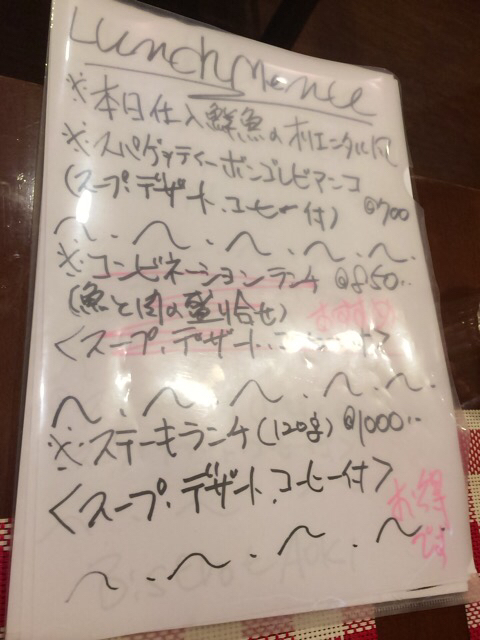 Lunch Menue
※本日仕入鮮魚のオリエンタル風
※スパゲッティーボンゴレビアンコ
(スープ.デザート.コーヒー付) @700
※コンビネーションランチ @850-
(魚と肉の盛り合せ)
<スープ.デザート.
※ステーキランチ(120g) @1000-
<スープ.デザート.コーヒー付>
お得
です